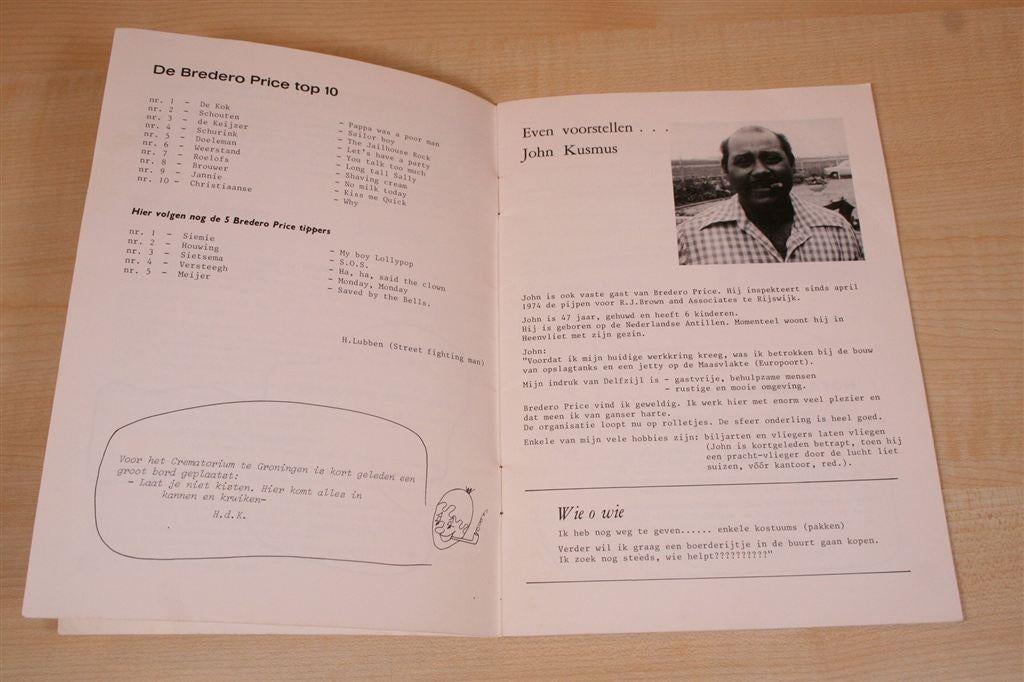 De Bredero Price top 10
nr. 1 - De Kok - Pappa was a poor man
nr. 2 - Schouten - Sailor boy
nr. 3 - de Keijzer - The Jailhouse Rock
nr. 4 - Schurink - Let's have a party
nr. 5 - Doeleman - You talk too much
nr. 6 - Weerstand - Long tall Sally
nr. 7 - Roelofs - Shaving cream
nr. 8 - Brouwer - No milk today
nr. 9 - Jannie - Kiss me Quick
nr. 10 - Christiaanse - Why
Hier volgen nog de 5 Bredero Price tippers
nr. 1 - Siemie - My boy Lollypop
nr. 2 - Houwing - S.O.S.
nr. 3 - Sietsema - Ha, ha, said the clown
nr. 4 - Versteegh - Monday, Monday
nr. 5 - Meijer - Saved by the Bells.
H.Lubben (Street fighting man)
Voor het Crematorium te Groningen is kort geleden een
groot bord geplaatst:
- Laat je niet kisten. Hier komt alles in
kannen en kruiken-
H.d.K.
Even voorstellen . . .
John Kusmus
John is ook vaste gast van Bredero Price. Hij inspekteert sinds april
1974 de pijpen voor R.J.Brown and Associates te Rijswijk.
John is 47 jaar, gehuwd en heeft 6 kinderen.
Hij is geboren op de Nederlandse Antillen. Momenteel woont hij in
Heenvliet met zijn gezin.
John:
"Voordat ik mijn huidige werkkring kreeg, was ik betrokken bij de bouw
van opslagtanks en een jetty op de Maasvlakte (Europoort).
Mijn indruk van Delfzijl is - gastvrije, behulpzame mensen
- rustige en mooie omgeving.
Bredero Price vind ik geweldig. Ik werk hier met enorm veel plezier en
dat meen ik van ganser harte.
De organisatie loopt nu op rolletjes. De sfeer onderling is heel goed.
Enkele van mijn vele hobbies zijn: biljarten en vliegers laten vliegen
(John is kortgeleden betrapt, toen hij
een pracht-vlieger door de lucht liet
suizen, vóór kantoor, red.).
Wie o wie
Ik heb nog weg te geven...... enkele kostuums (pakken)
Verder wil ik graag een boerderijtje in de buurt gaan kopen.
Ik zoek nog steeds, wie helpt??????????"